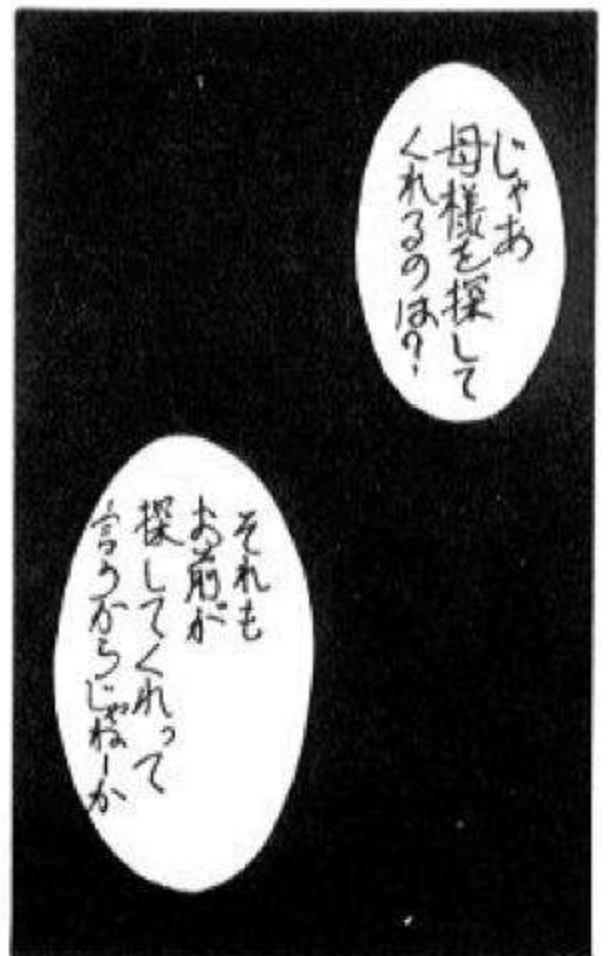 じゃあ
母様を探して
くれるのは?
それも
お前が
探してくれって
言うからじゃねーか